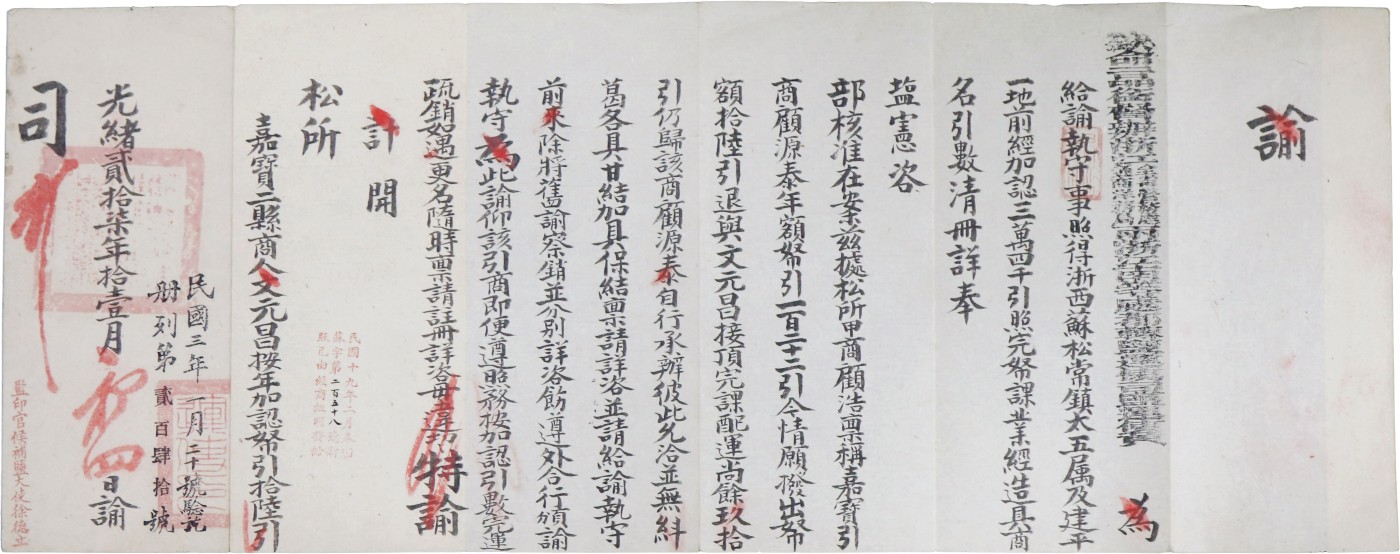 諭
為
給諭執守事照得浙西蘇松常鎮太五属及建平
一地前經加認三萬四千引照完帑課業經造具商
名引數清冊詳奉
塩憲咨
部核准在案兹據松所甲商顧浩稟稱嘉寶引
商顧源泰年額帑引一百二十二引今情願撥出帑
額拾陸引退與文元昌接頂完課配運尚餘玖拾
引仍歸該商顧源泰自行承辦彼此允洽並無糾
葛各具甘結加具保結稟請詳咨並請給諭執守
前來除將舊諭察銷並分別詳咨飭遵外合行頒諭
執守為此諭仰該引商即便遵照務按加認引數完運
疏銷如遇更名隨時稟請註冊詳咨毋違切特諭
計開
松所
嘉寶二縣商人文元昌按年加認帑引拾陸引
民國十九年二月
蘇字第二百五十八
光緒貳拾柒年拾壹月初四日諭
司
民國三年一月二十號驗訖
册列第貳百肆拾號
監印官候補鹽大使徐德立